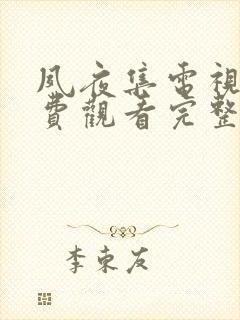 夙夜集電視
費觀看完整
李東友